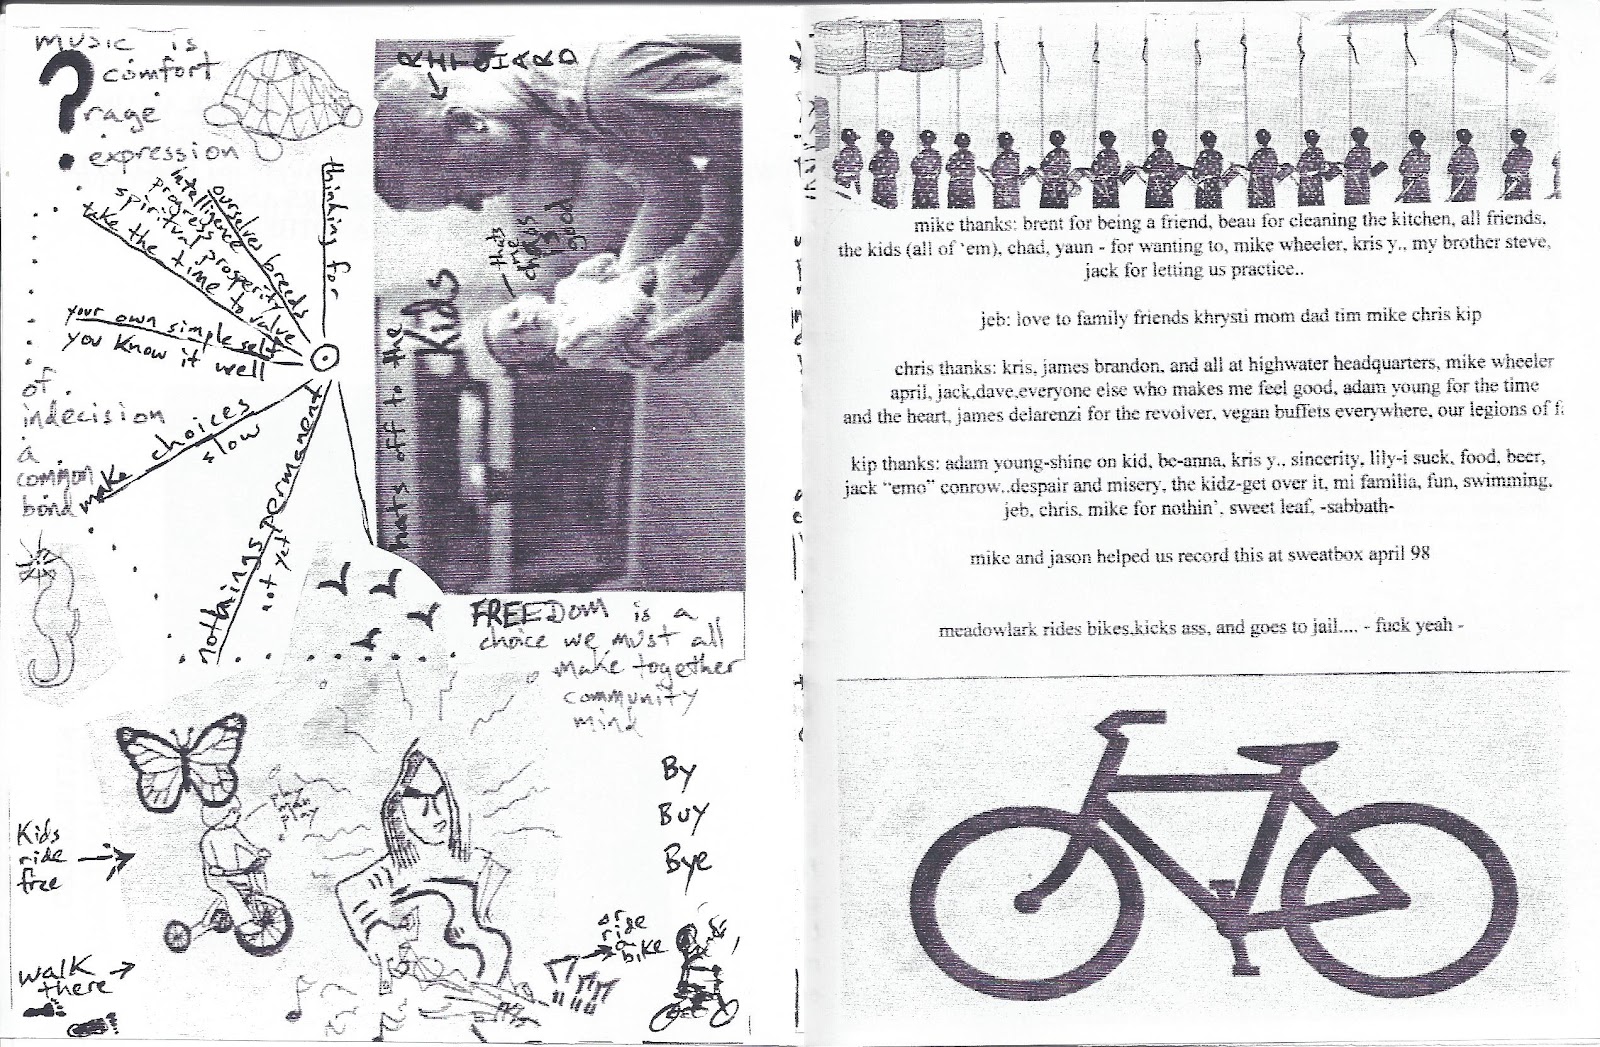 music is
comfort
rage
expression
thinking for
ourselves breeds
intelligence
progress
spiritual prosperity
take the time to value
your own simple self
you know it well
make choices
slow
nothings permanent
not yet
of
indecision
a
common
bond
hats off to the
Kids
thats
me
chaos
is
good
FREEDOM is a
choice we must all
make together
community
mind
By
Buy
Bye
Kids
ride
free
walk
there
or
ride
a
bike
mike thanks: brent for being a friend, beau for cleaning the kitchen, all friends,
the kids (all of 'em), chad, yaun - for wanting to, mike wheeler, kris y.. my brother steve,
jack for letting us practice..
jeb: love to family friends khrysti mom dad tim mike chris kip
chris thanks: kris, james brandon, and all at highwater headquarters, mike wheeler
april, jack,dave,everyone else who makes me feel good, adam young for the time
and the heart, james delarenzi for the revolver, vegan buffets everywhere, our legions of f
kip thanks: adam young-shine on kid, be-anna, kris y.. sincerity, lily-i suck, food, beer,
jack “emo” conrow..despair and misery, the kidz-get over it, mi familia, fun, swimming,
jeb, chris, mike for nothin'. sweet leaf, -sabbath-
mike and jason helped us record this at sweatbox april 98
meadowlark rides bikes,kicks ass, and goes to jail.... - fuck yeah -